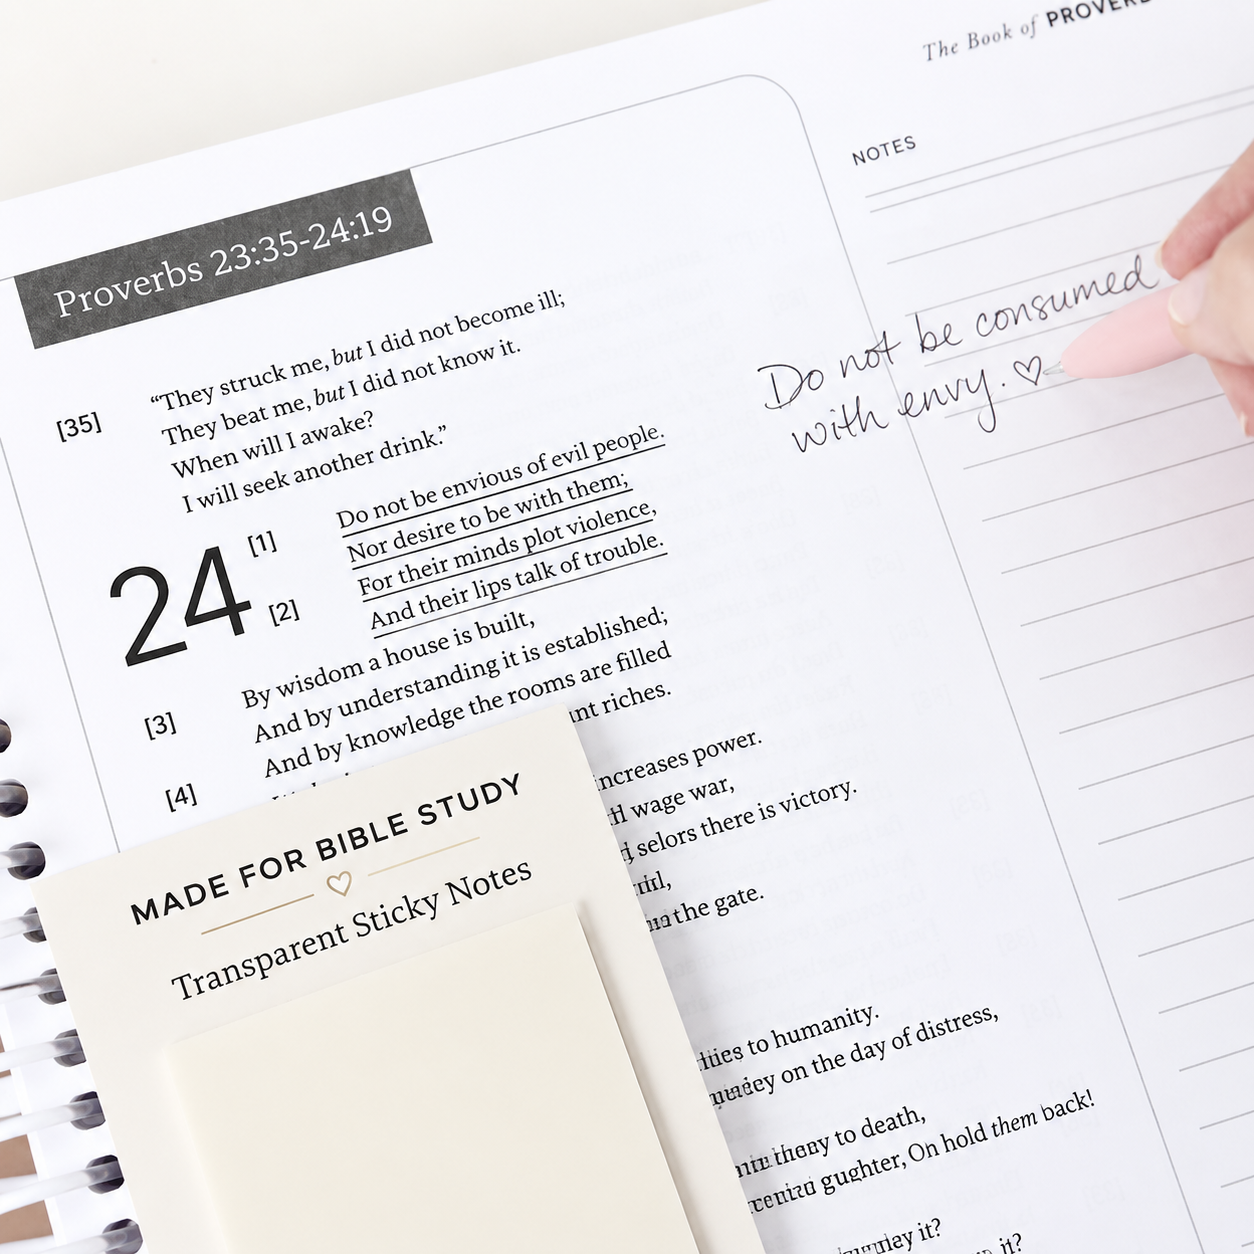 The Book of PROVERB
NOTES
Proverbs 23:35-24:19
Do not be consumed
with envy. ♡
[35] “They struck me, but I did not become ill;
They beat me, but I did not know it.
When will I awake?
I will seek another drink.”
24
[1] Do not be envious of evil people.
Nor desire to be with them;
[2] For their minds plot violence,
And their lips talk of trouble.
[3] By wisdom a house is built,
And by understanding it is established;
[4] And by knowledge the rooms are filled
riches.
increases power.
wage war,
selors there is victory.
the gate.
to humanity.
on the day of distress,
to death,
hold them back!
it?
it?
MADE FOR BIBLE STUDY
Transparent Sticky Notes